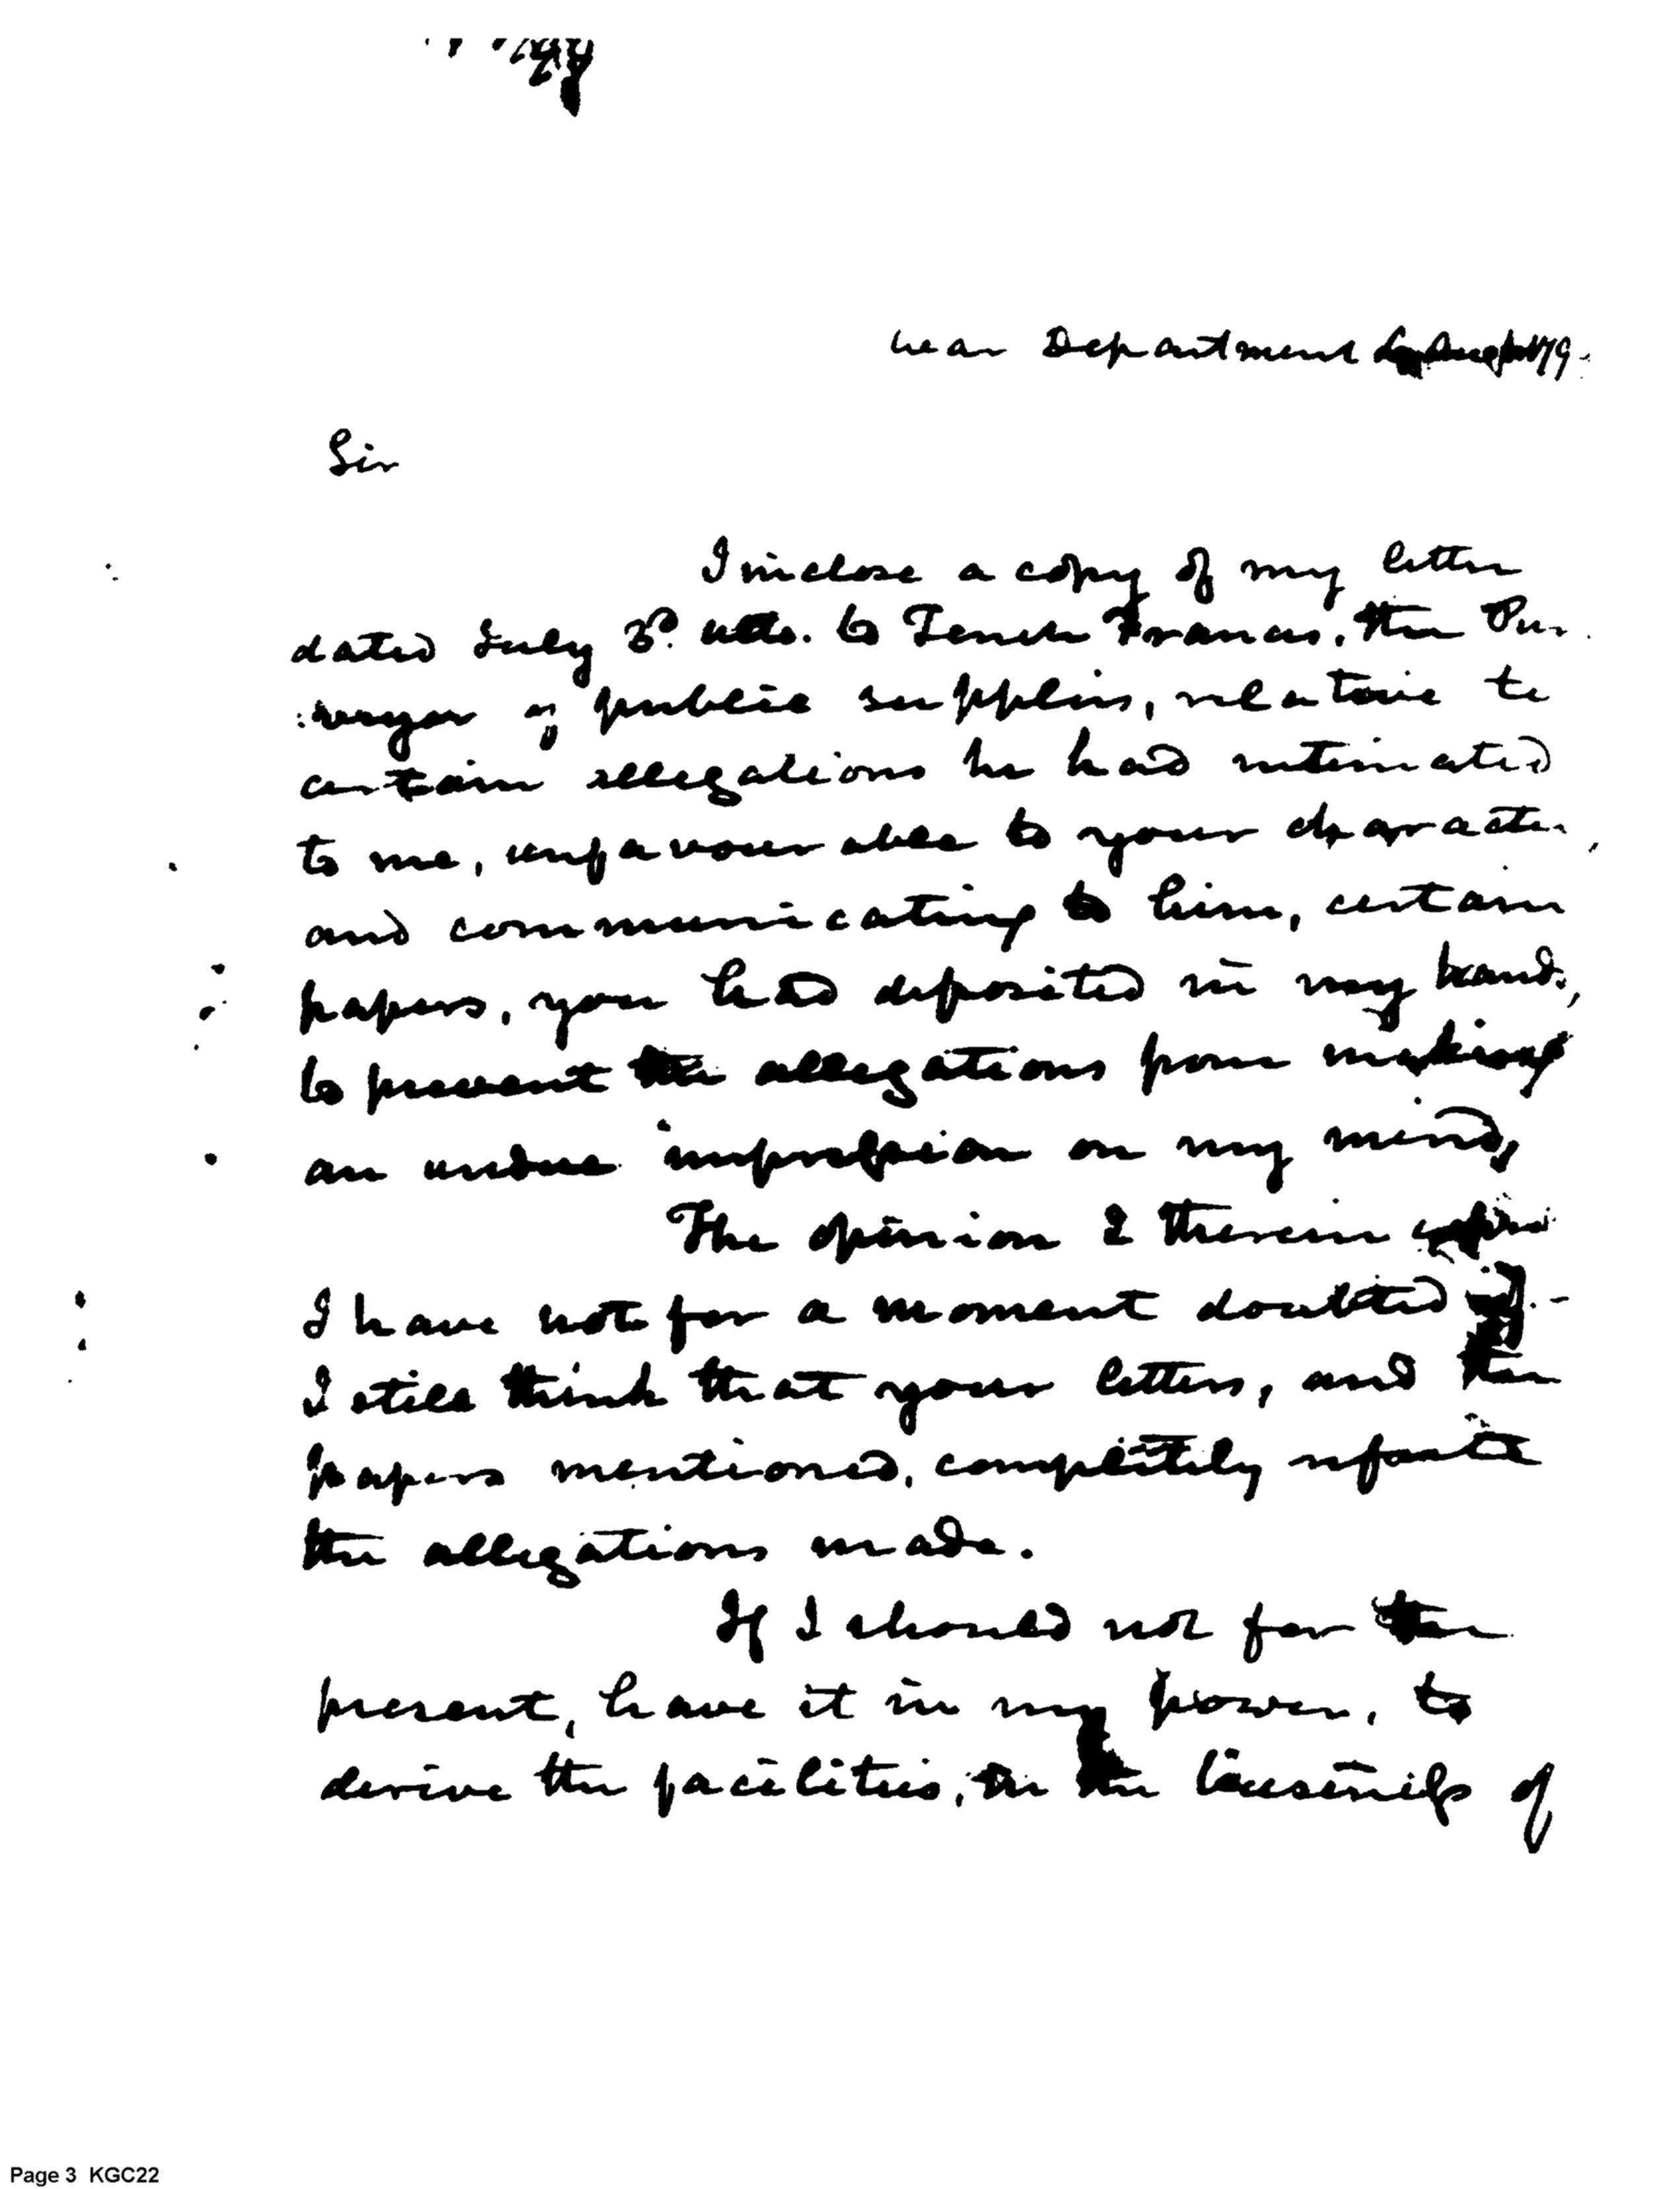 War Department
Sir
I inclose a copy of my letter
dated July 3d. ulto. to Tench Francis, the Pur-
:veyor of public supplies, relative to
certain allegations he had intimated
to me, unfavourable to your character
and communicating to him, certain
papers, you had deposited in my hands,
to prevent the allegations from making
an undue impression on my mind,
The opinion I therein
I have not for a moment doubted of.-
I still think that your letters, and the
papers mentioned, completely refute
the allegations made.
If I should not for the
present, have it in my power, to
derive the facilities, in the business of
Page 3 KGC22